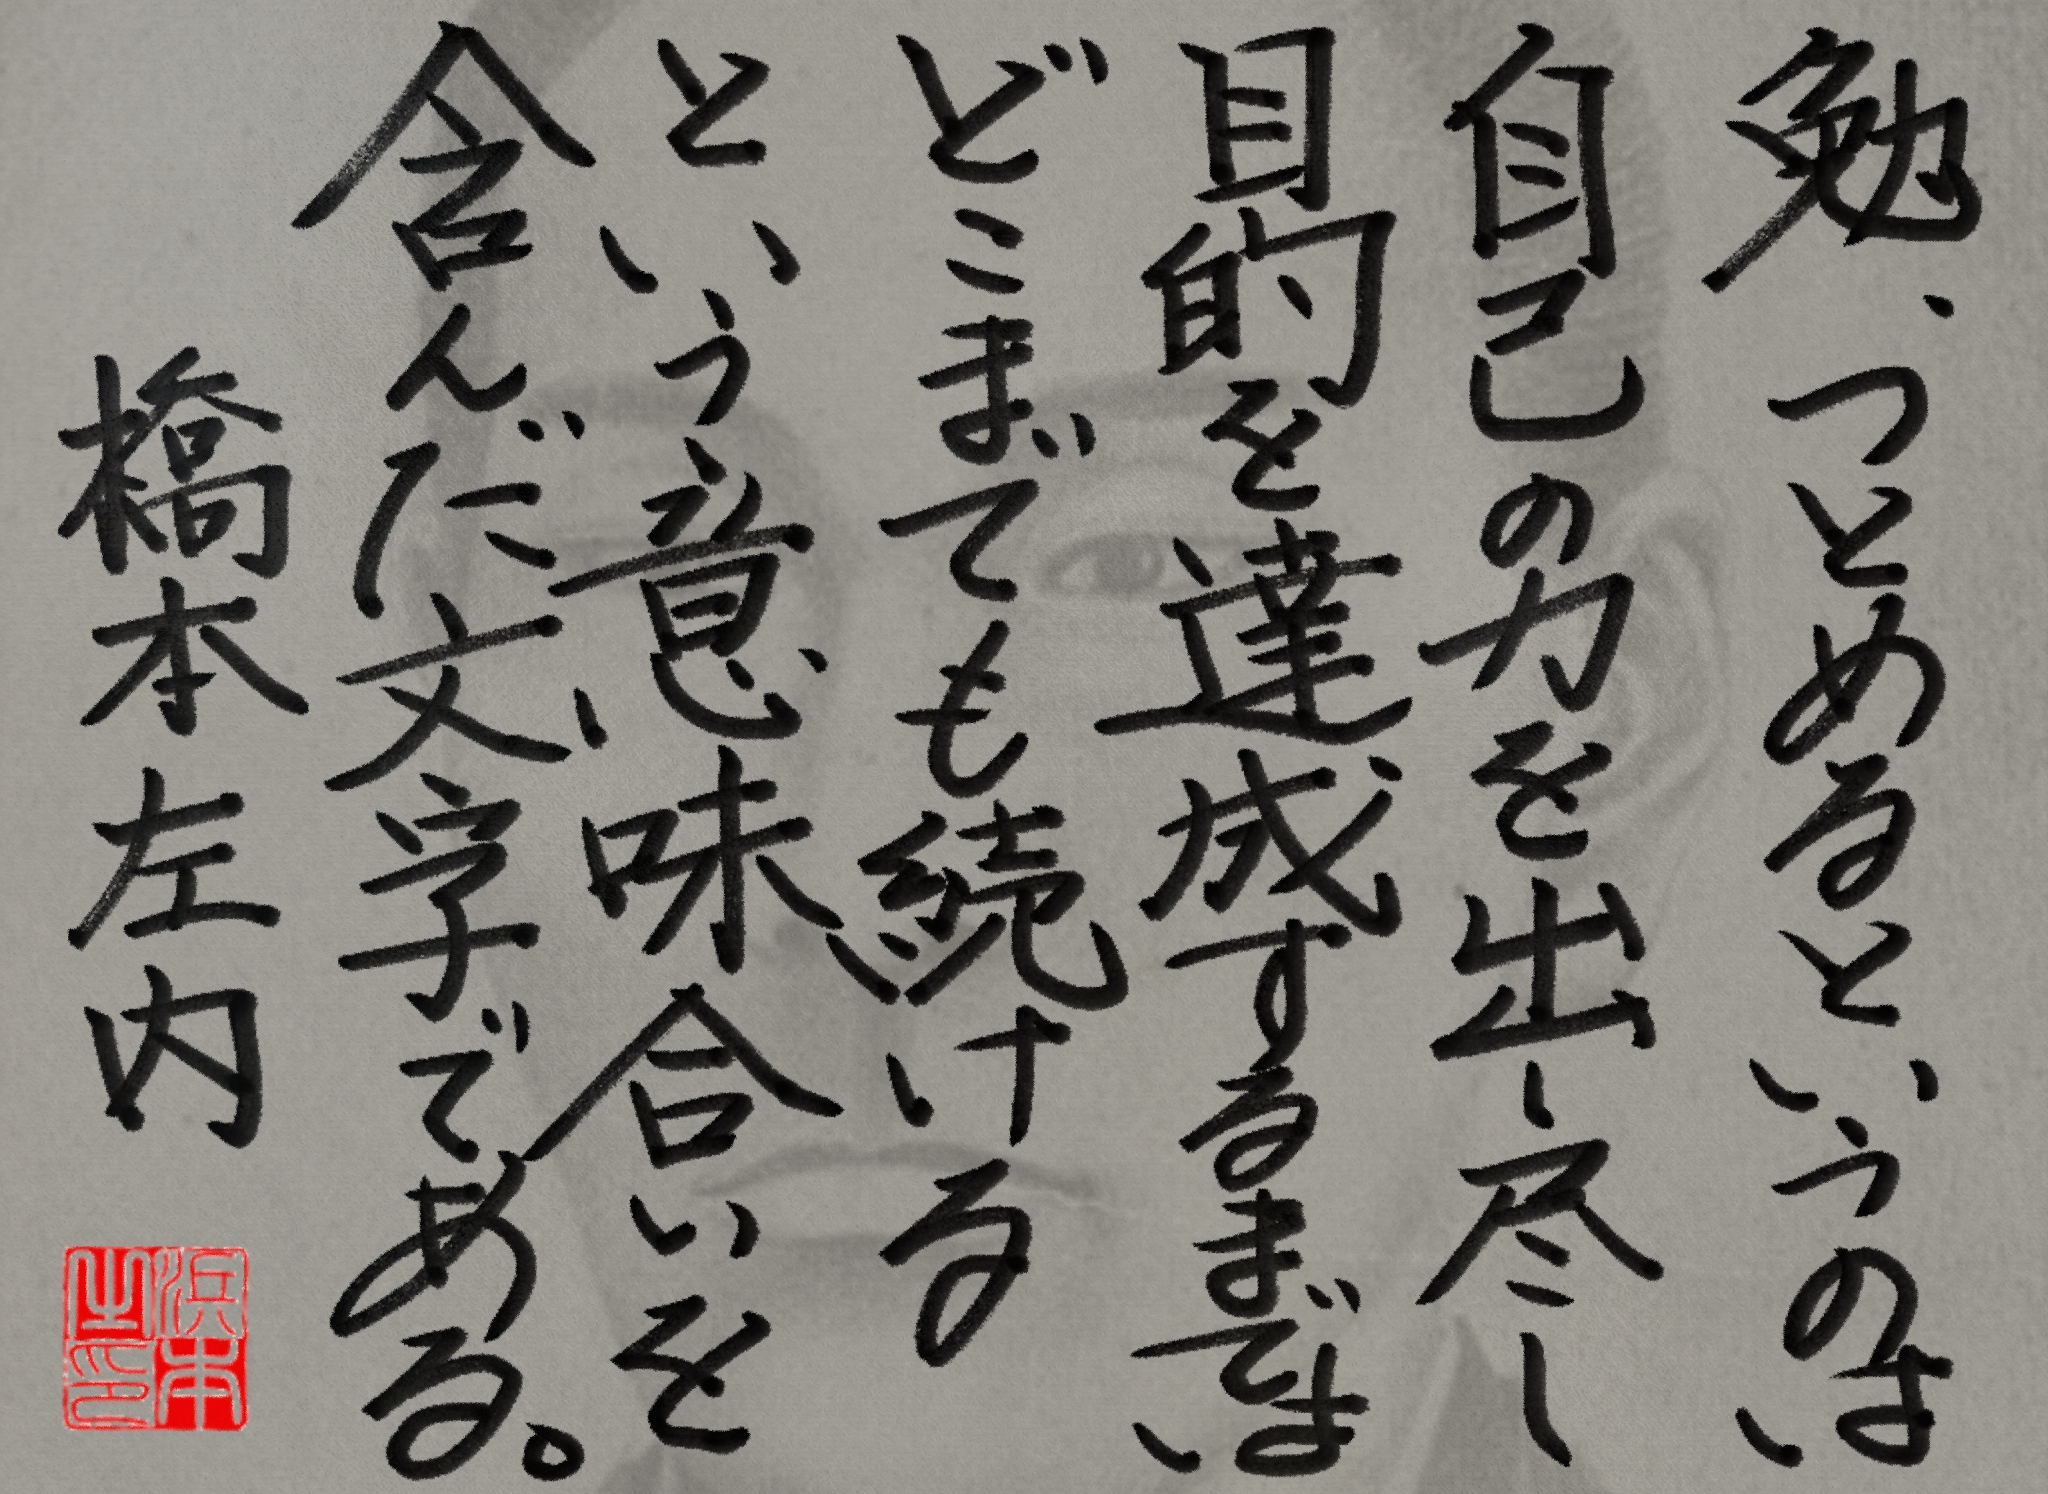 勉、つとめるというのは
自己の力を出し尽し
目的を達成するまでは
どこまでも続ける
という意味合いを
含んだ文字である。
橋本左内
浜本之印